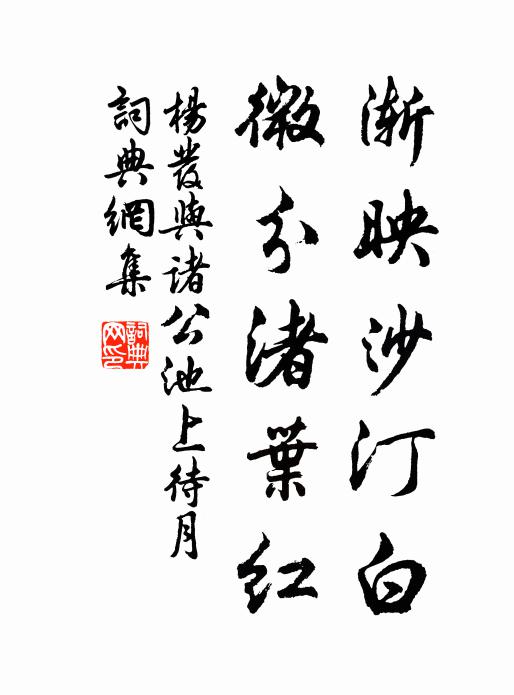 漸映沙汀白
微分渚葉紅
楊發與諸公池上待月
詞典網集
詞典网印